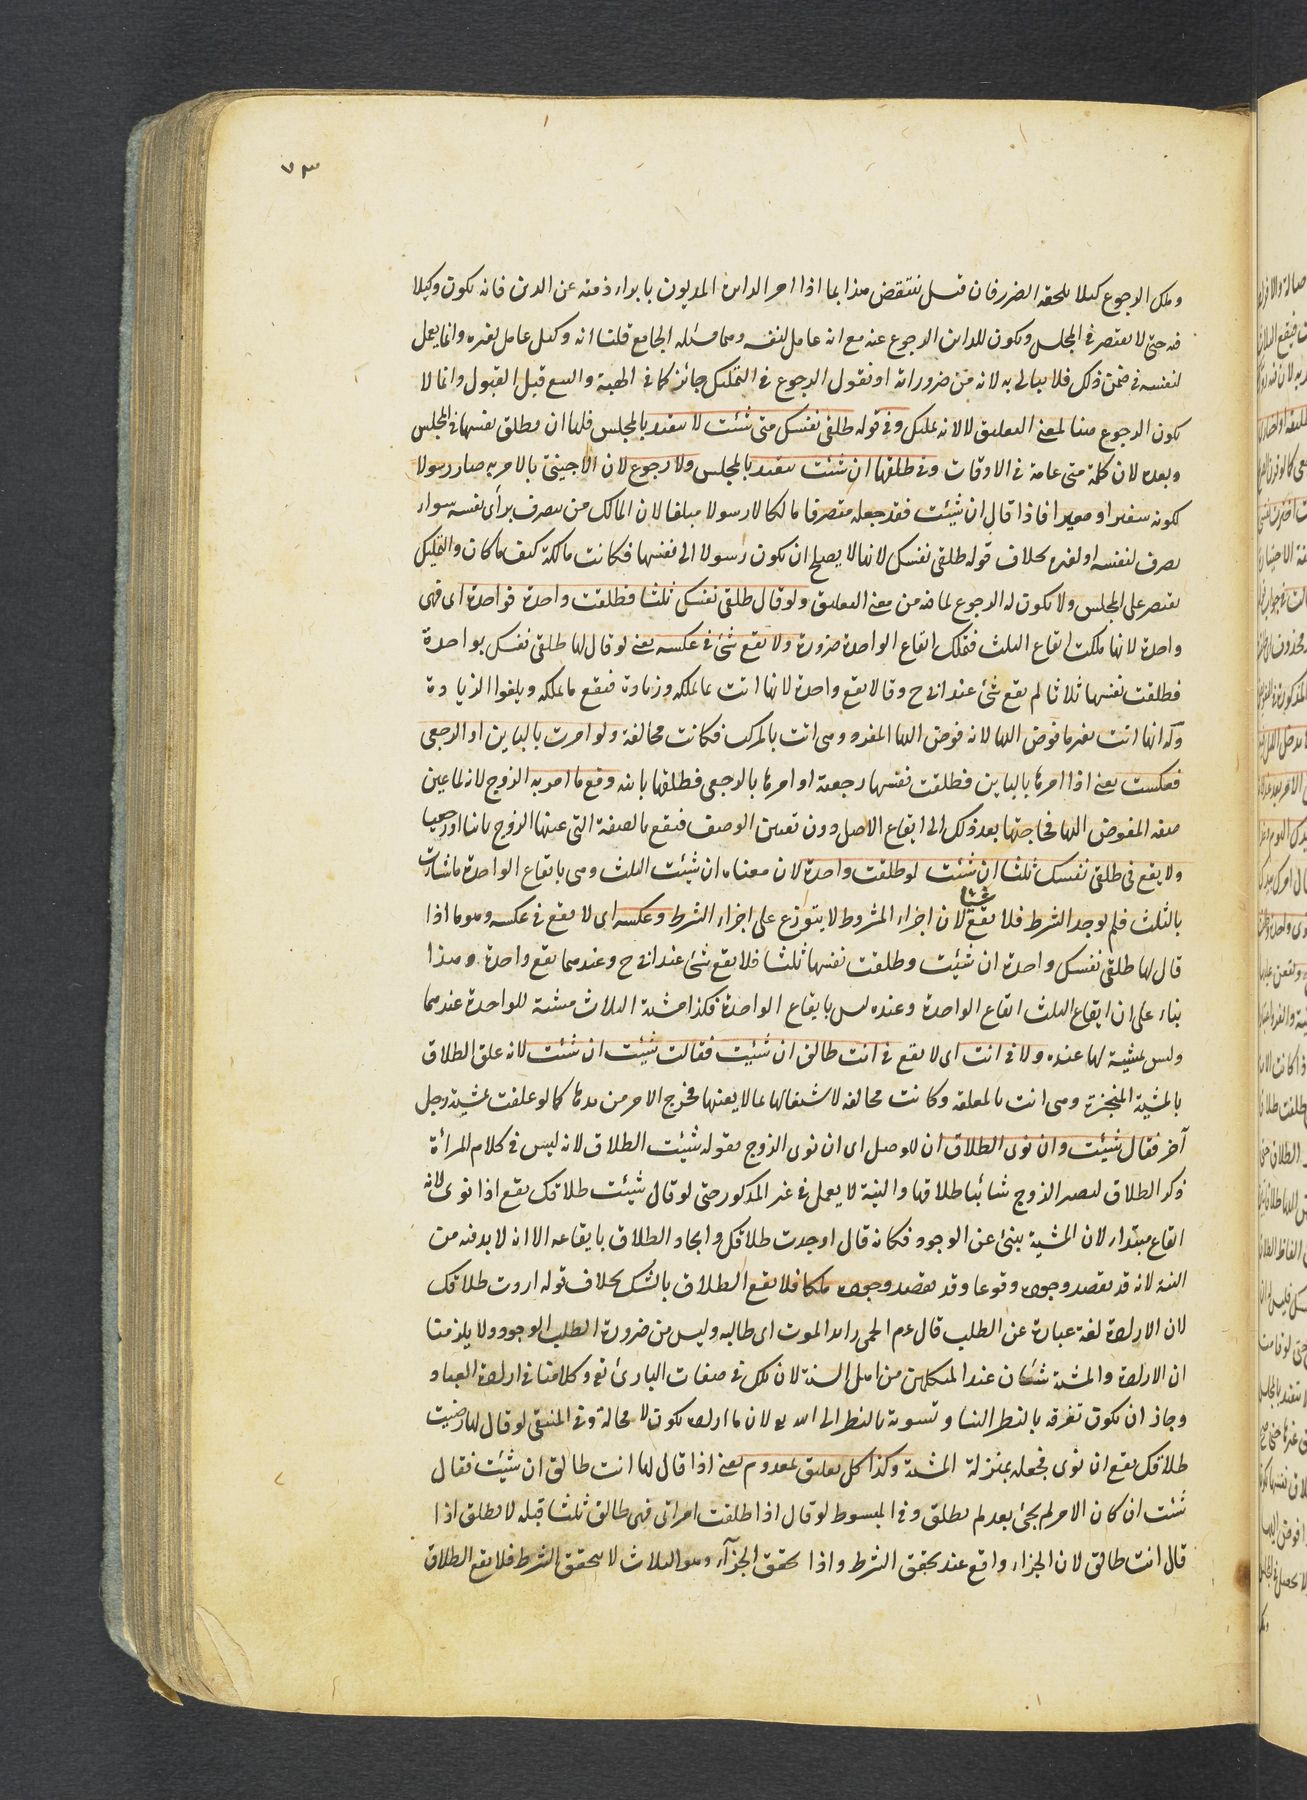 ٧٣
وملك الرجوع كيلا يلحقه الضرر فان قيل ينتقض هذا بما اذا امر الداين المديون بابراء ذمته عن الدين فانه يكون وكيلا
فيه حتى لا يقتصر في المجلس ويكون للداين الرجوع عنه مع انه عامل لنفسه وهما مسئلة الجامع قلنا انه وكيل عامل لغيره وانما يعمل
لنفسه في ضمن ذلك فلا يبالى به لانه من ضروراته او نقول الرجوع في التمليك جائز كما في الهبة والبيع قبل القبول وانما لا
يكون الرجوع هنا لمعنى التعليق لا لانه تمليك وفي قوله طلقي نفسك متى شئت لا يتقيد بالمجلس فلها ان تطلق نفسها في المجلس
وبعده لان كلمة متى عامة في الاوقات وفي طلقها ان شئت يتقيد بالمجلس ولا رجوع لان الاجنبي بالامر به صار رسولا
لكونه سفيرا ومعبرا فاذا قال ان شئت فقد جعله متصرفا مالكا لا رسولا مبلغا لان المالك من يتصرف برأى نفسه سواء
تصرف لنفسه او لغيره بخلاف قوله طلقي نفسك لانها لا يصلح ان يكون رسولا الى نفسها فكانت مالكة كيف ما كان والتمليك
يقتصر على المجلس ولا يكون له الرجوع لما فيه من معنى التعليق ولو قال طلقي نفسك ثلثا وطلقت واحدة فواحدة اى فهى
واحدة لانها ملكت ايقاع الثلث فتملك ايقاع الواحدة ضرورة ولا يقع شئ في عكسه يعنى لو قال لها طلقي نفسك بواحدة
فطلقت نفسها ثلاثا لم يقع شئ عند ابي ح وقالا يقع واحدة لانها اتت بما تملكه وزيادة فيقع ما تملكه ويلغوا الزيادة
وله انها اتت بغير ما فوض اليها لانه فوض اليها المفرد وهى اتت بالمركب فكانت مخالفة ولو امرت بالباين او الرجعى
فعكست يعنى اذا امرها بالباين فطلقت نفسها رجعية او امرها بالرجعى فطلقها باينة وقع ما امر به الزوج لانه لما عين
صفة المفوض اليها فحاجتها بعد ذلك الى ايقاع الاصل دون تعيين الوصف فيقع بالصفة التى عينها الزوج باينا او رجعيا
ولا يقع في طلقي نفسك ثلثا ان شئت لو طلقت واحدة لان معناه ان شئت الثلث وهى بايقاع الواحدة ما شاءت
بالثلث فلم يوجد الشرط فلا يقع شيئا لان اجزاء المشروط لا يتوزع على اجزاء الشرط وعكسه اى لا يقع في عكسه وهو ما اذا
قال لها طلقي نفسك واحدة ان شئت وطلقت نفسها ثلثا فلا يقع شئ عند ابي ح وعندهما يقع واحدة وهذا
بناء على ان ايقاع الثلث ايقاع الواحدة وعنده ليس بايقاع الواحدة فكذا مشية الثلاث مشية للواحدة عندهما
وليس بمشية لها عنده ولا في انت اى لا يقع في انت طالق ان شئت فقالت شئت ان شئت لانه علق الطلاق
بالمشية المنجزة وهى اتت بالمعلقة وكانت مخالفة لاشتغالها بما لا يعنيها فخرج الامر من يدها كما لو علقت بمشية رجل
آخر فقال شئت وان نوى الطلاق ان للوصل اى ان نوى الزوج بقوله شئت الطلاق لانه ليس في كلام المرأة
ذكر الطلاق ليصير الزوج شائيا طلاقها والنية لا يعمل في غير المذكور حتى لو قال شئت طلاقك يقع اذا نوى لانه
ايقاع مبتداء لان المشية ينبئ عن الوجود فكانه قال اوجدت طلاقك وايجاد الطلاق بايقاعه الا انه لا بد فيه من
النية لانه قد يقصد وجوده وقوعا وقد يقصد وجوده ملكا فلا يقع الطلاق بالشك بخلاف قوله اردت طلاقك
لان الارادة لغة عبارة عن الطلب قال عم الحمى رايد الموت اى طالبه وليس من ضرورة الطلب الوجود ولا يلزمنا
ان الارادة والمشية شيئان عند المتكلمين من اهل السنة لان ذلك في صفات البارئ تع وكلامنا في ارادة العباد
وجاز ان يكون تفرقة بالنظر الينا وتسوية بالنظر الى الله تع لان ما اراده يكون لا محالة وفي المنتقى لو قال لها رضيت
طلاقك يقع ان نوى فجعله بمنزلة المشية وكذا كل تعليق بمعدوم يعنى اذا قال لها انت طالق ان شئت فقال
شئت ان كان الامر لم يجئ بعد لم يطلق وفي المبسوط لو قال اذا طلقت امراتى فهى طالق ثلثا قبله لا يطلق اذا
قال انت طالق لان الجزاء واقع عند تحقق الشرط واذا تحقق الجزاء وهو الثلاث لا يتحقق الشرط فلا يقع الطلاق